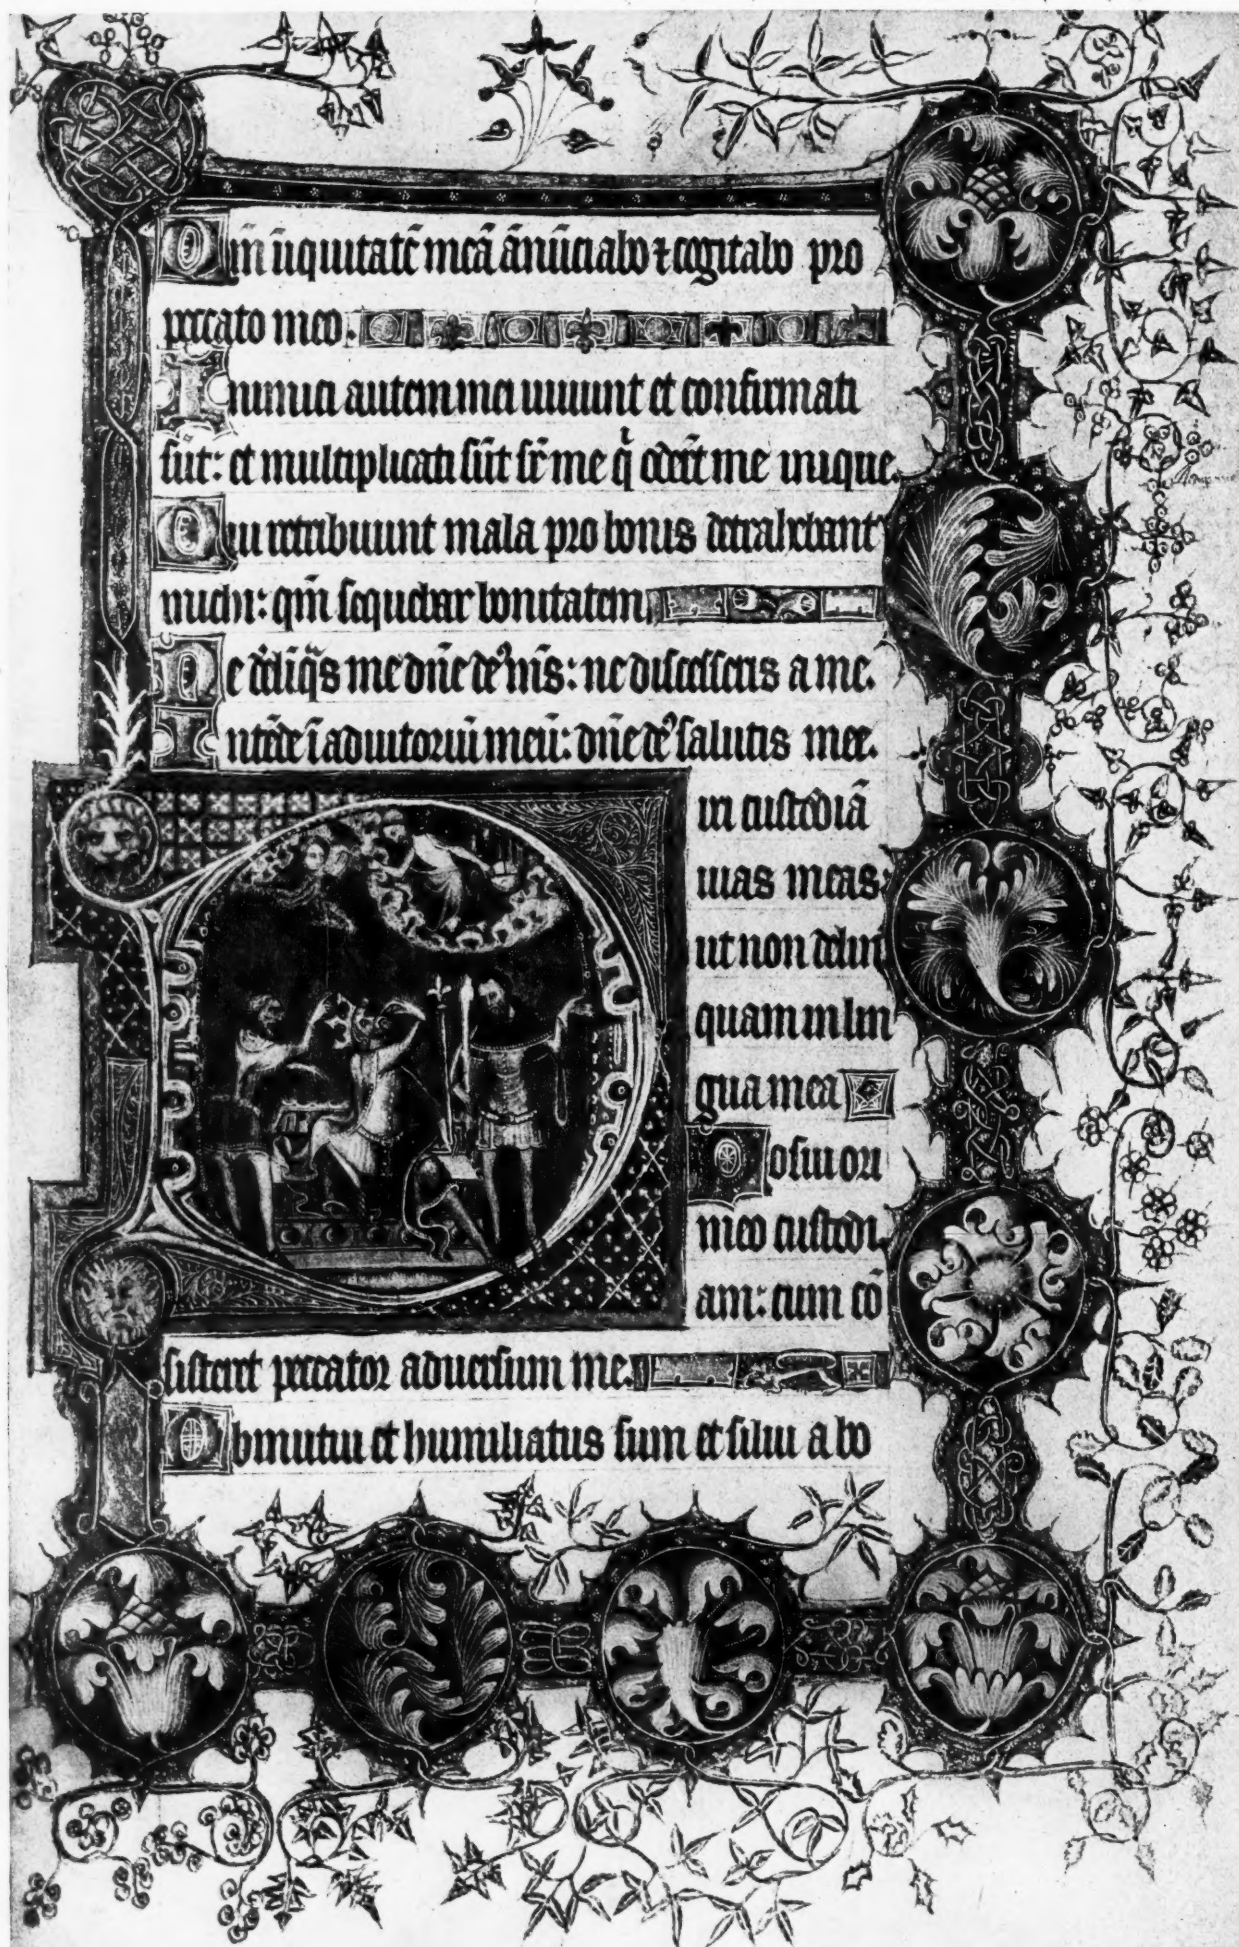 Qm̄ īiquitatē meā ānūciabo ⁊ cogitabo pro
peccato meo.
Inimici autem mei uiuunt et confirmati
sūt: et multiplicati sūt sr̄ me qͥ oderūt me inique.
Qui retribuunt mala pro bonis detrahebant
michi: qm̄ sequebar bonitatem
Ne dereliq̄s me dn̄e deꝰ m̄s: ne discesseris a me.
Intēde ī adiutoriū meū: dn̄e deꝰ salutis mee.
D
ixi custodiā
uias meas:
ut non delin
quam in lin
gua mea
Posui ori
meo custodi
am: cum cō
sisteret peccator aduersum me.
Obmutui et humiliatus sum et silui a bo